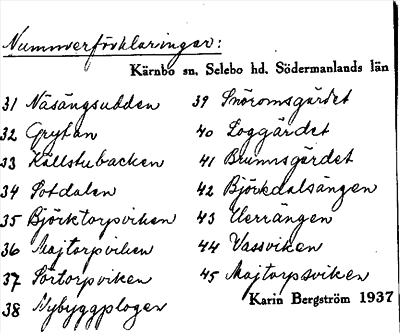 Nummerförklaringar:
Kärnbo sn, Selebo hd. Södermanlands län
31 Näsängsudden
32 Grytan
33 Källstubacken
34 Sotdalen
35 Björktorpsviken
36 Majtorpviken
37 Sörtorpsviken
38 Nybyggplogen
39 Snöromsgärdet
40 Loggärdet
41 Brunnsgärdet
42 Björkdalsängen
43 Kerrängen
44 Vassviken
45 Majtorpsviken
Karin Bergström 1937